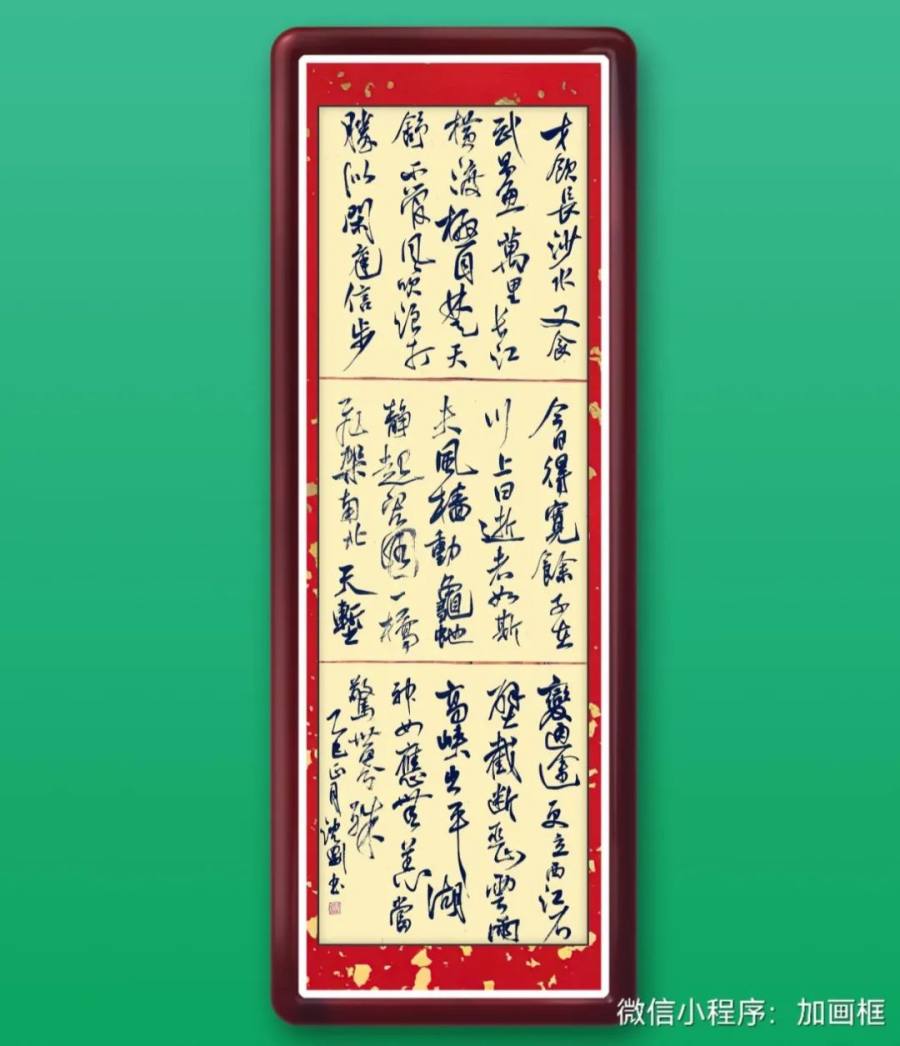 才飲長沙水又食
武昌魚萬里长江
横渡極目楚天
舒不管风吹浪打
勝似閑庭信步
今日得寬餘子在
川上曰逝者如斯
夫風檣動龜蛇
静起宏圖一橋
飛架南北天塹
變通途更立西江石
壁截断巫山雲雨
高峡出平湖
神女應無恙當
驚世界殊
乙巳正月沈剛书
微信小程序：加画框